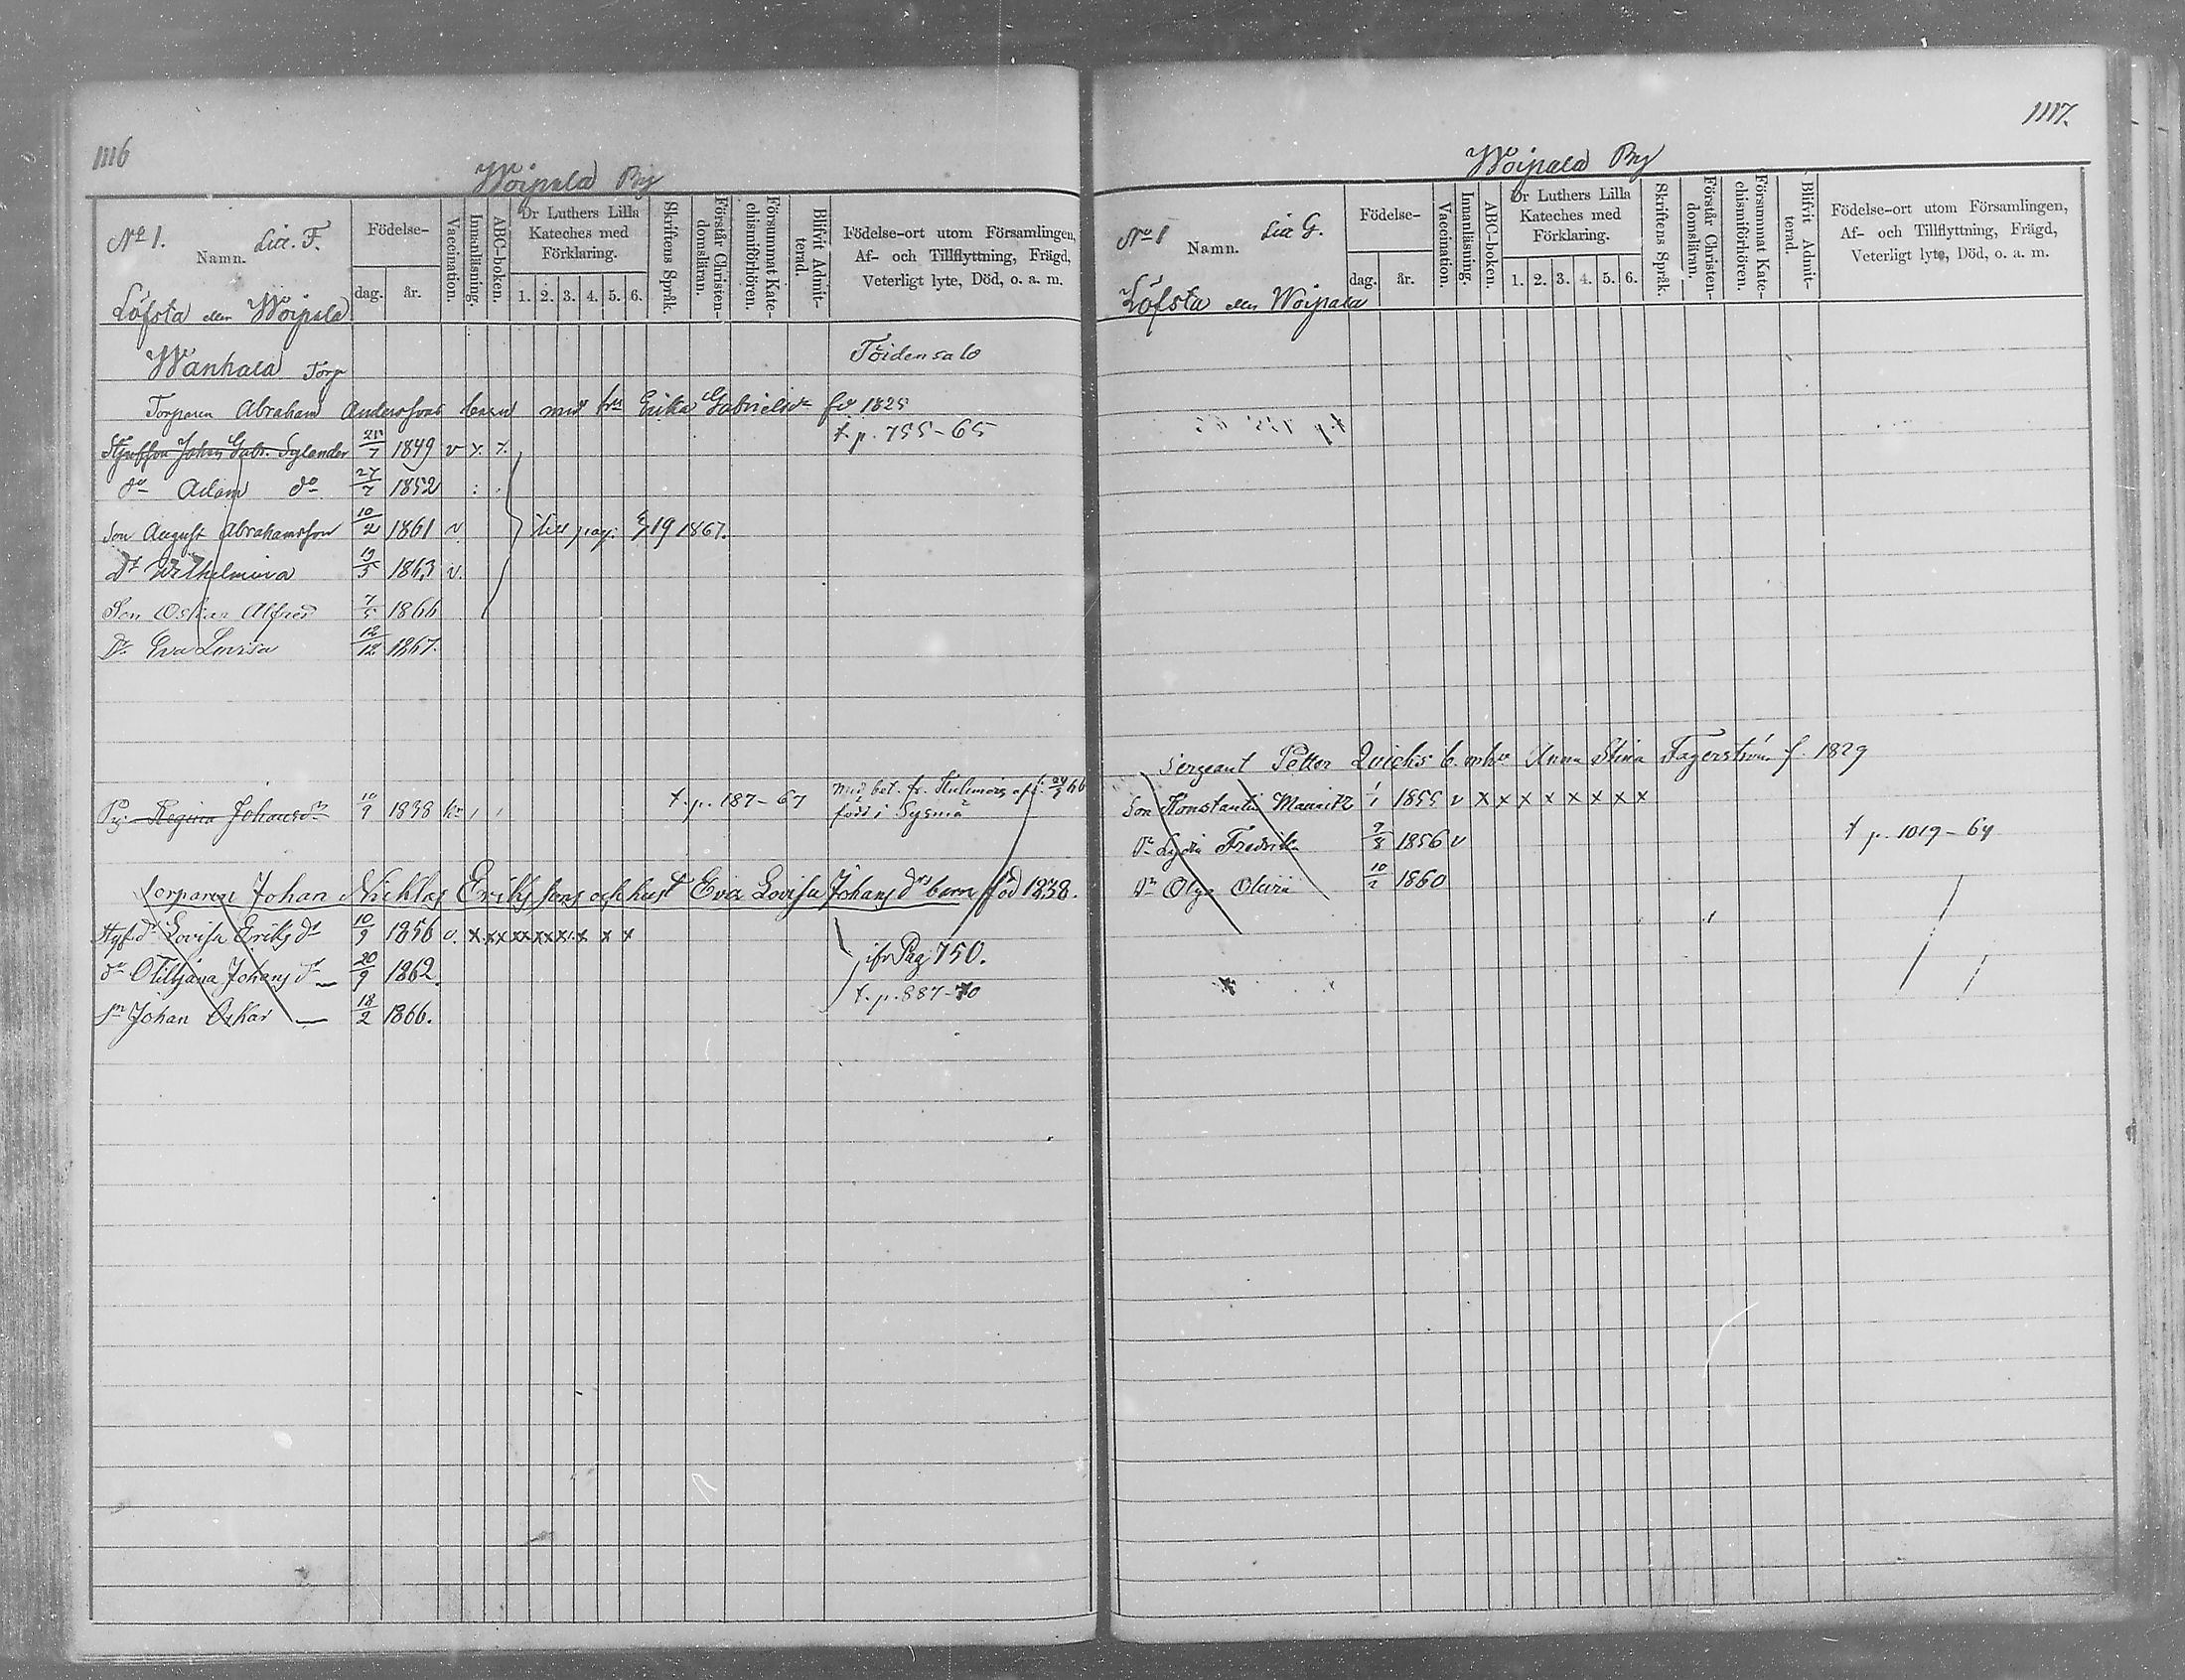 1116
Woipala By
No 1. Namn. Litt. F.
Födelse-
dag. år.
Vaccination.
Innanläsning.
ABC-boken.
Dr Luthers Lilla Kateches med Förklaring.
1. 2. 3. 4. 5. 6.
Skriftens Språk.
Förstår Christen-domsläran.
Försummat Kate-chismiförhören.
Blifvit Admit-terad.
Födelse-ort utom Församlingen,
Af- och Tillflyttning, Frägd,
Veterligt lyte, Död, o. a. m.
Löfsta eller Woipala
Wanhala Torp Töidensalo
Torparen Abraham Anderssons barn med hu Erika Gabrielsdr fö 1825
Styfson Johan Gabr. Sylander 1849 v t.p. 755-65
do Adam do 27/7 1852
Son August Abrahamsson 10/2 1861 v. till pag. 719 1867.
Dr Wilhelmina 19/5 1863 v.
Son Oskar Alfred 7/5 1866
Dr Eva Lovisa 12/12 1867.
Pig. Regina Johansdr 10/9 1838 t.p. 187-67 född i Sysmä
Torparen Johan Nicklas Erikssons och hust Eva Lovisa Johansdrs barn född 1838.
Styfdr Lovisa Eriksdr 10/9 1856 v. x xx xx xx x x x x
dr Otilljana Johansdr 20/9 1862. ifr Pag 750.
sn Johan Oskar 18/2 1866. t.p. 887-70
1117.
Woipala By
No 1 Namn. Litt G.
Födelse-
dag. år.
Vaccination.
Innanläsning.
ABC-boken.
Dr Luthers Lilla Kateches med Förklaring.
1. 2. 3. 4. 5. 6.
Skriftens Språk.
Förstår Christen-domsläran.
Försummat Kate-chismiförhören.
Blifvit Admit-terad.
Födelse-ort utom Församlingen,
Af- och Tillflyttning, Frägd,
Veterligt lyte, Död, o. a. m.
Löfsta eller Woipala
Sergeant Petter Qvichs b. m hu Anna Stina Fagerström f. 1829
Son Konstantin Mauritz 1/1 1855 v x x x x x x x x
Dr Lydia Fredrika 9/8 1856 v t p. 1019-64
Dr Olga Olivia 10/2 1860